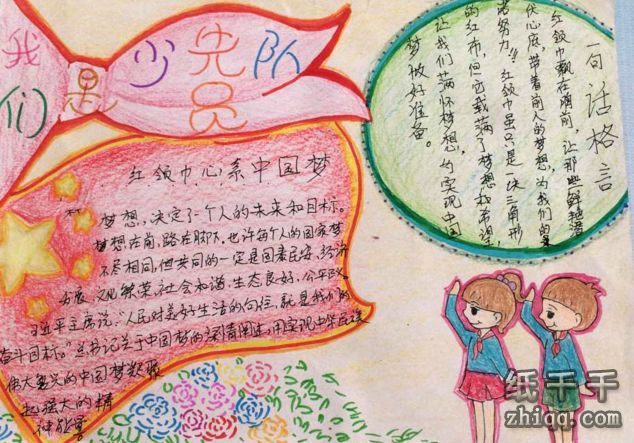 我们是少先队员
红领巾心系中国梦
梦想，决定了个人的未来和目标。
梦想在前，路在脚下，也许每个人的国家梦
不尽相同，但共同的一定是国泰民安，经济
发展，文化繁荣，社会和谐，生态良好，公平
习近平主席说："人民对美好生活的向往，就是我们的
奋斗目标。"总书记关于中国梦的深情阐述，用实现中华民族
伟大复兴的中国梦
起强大的精
神能量
一句话格言
红领巾飘在胸前，让那些鲜艳
伏心底，带着前人的梦想，为我们的
诺努力"红领巾虽只是一块三角形
的红布，但它载满了梦想和希望
让我们满怀梦想，为实现中国
梦做好准备。
纸千千
zhiqq.com